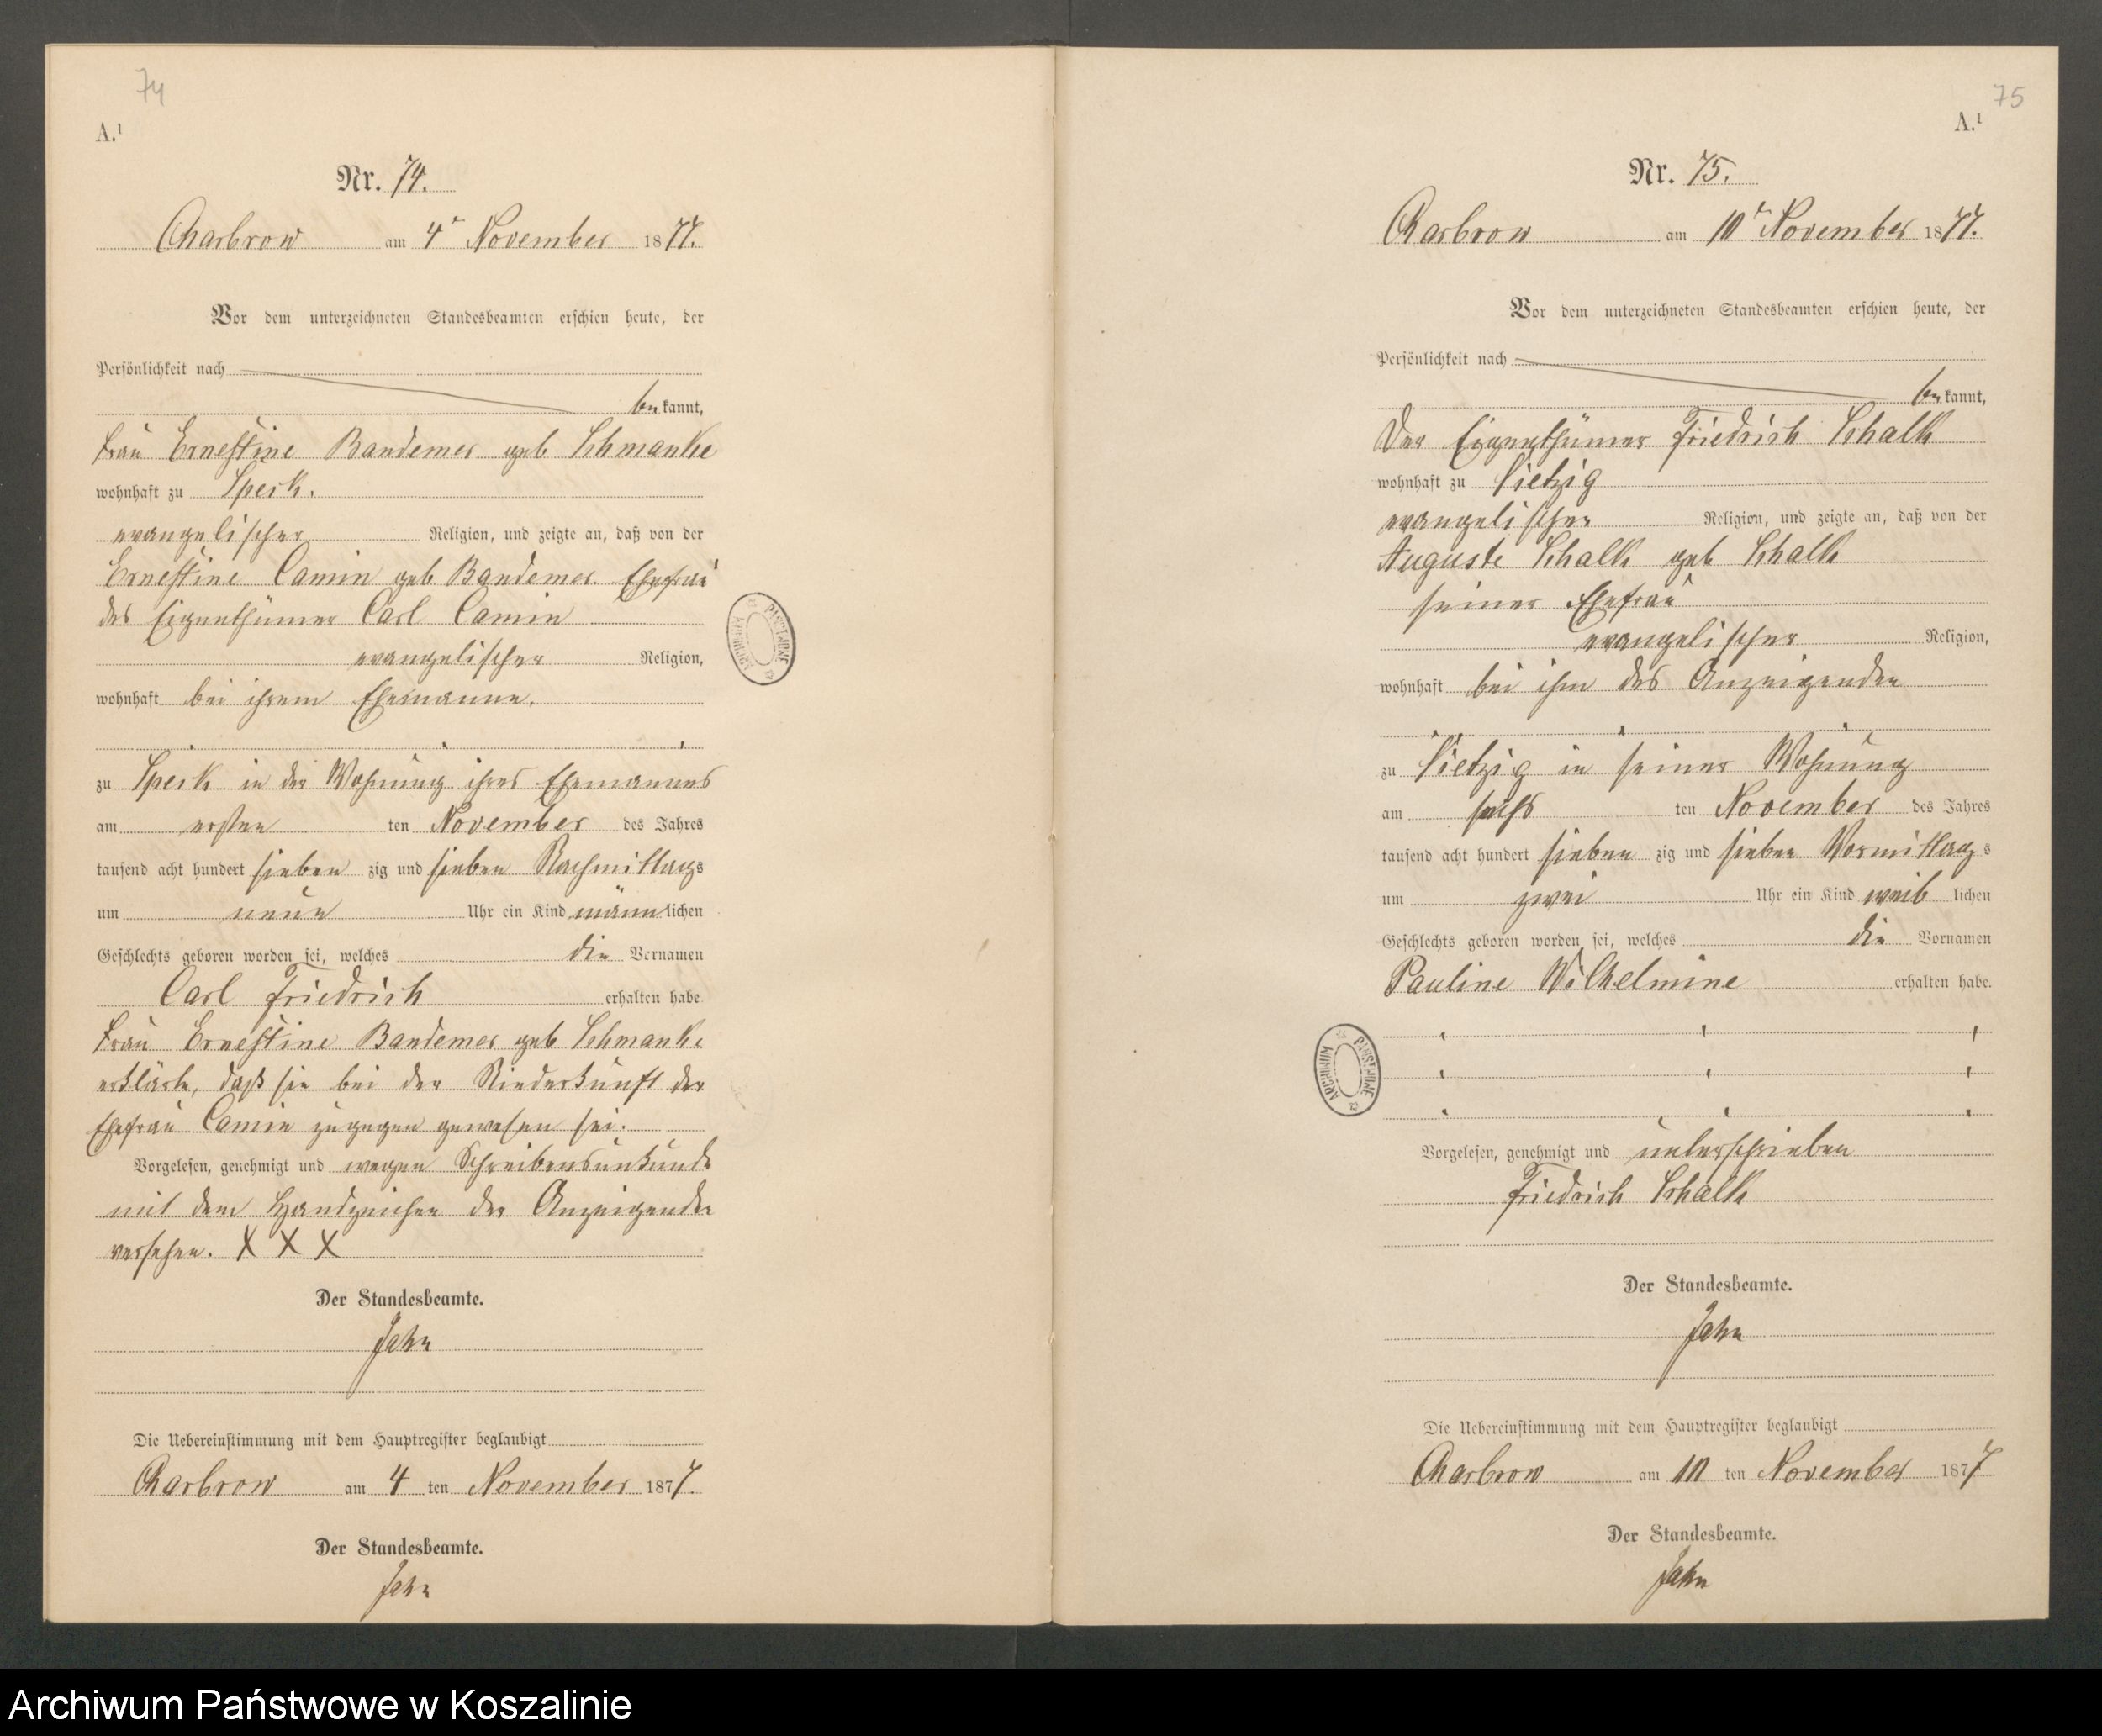 74
A.¹
Nr. 74.
Charbrow am 4ᵗ November 1877.
Vor dem unterzeichneten Standesbeamten erschien heute, der
Persönlichkeit nach
bekannt,
Frau Ernestine Bandemer geb Schmanke
wohnhaft zu Speck.
evangelischer Religion, und zeigte an, daß von der
Ernestine Camin geb Bandemer. Ehefrau
des Eigenthümer Carl Camin
evangelischer Religion,
wohnhaft bei ihrem Ehemanne.
zu Speck in der Wohnung ihres Ehemannes
am ersten ten November des Jahres
tausend acht hundert sieben zig und sieben Nachmittags
um neun Uhr ein Kind männlichen
Geschlechts geboren worden sei, welches die Vornamen
Carl Friedrich erhalten habe
Frau Ernestine Bandemer geb Schmanke
erklärte, daß sie bei der Niederkunft der
Ehefrau Camin zugegen gewesen sei.
Vorgelesen, genehmigt und wegen Schreibensunkunde
mit dem Handzeichen der Anzeigenden
versehen. X X X
Der Standesbeamte.
Jahn
Die Uebereinstimmung mit dem Hauptregister beglaubigt
Charbrow am 4 ten November 1877.
Der Standesbeamte.
Jahn
75
A.¹
Nr. 75.
Charbrow am 10ᵗ November 1877.
Vor dem unterzeichneten Standesbeamten erschien heute, der
Persönlichkeit nach
bekannt,
Der Eigenthümer Friedrich Schalk
wohnhaft zu Vietzig
evangelischer Religion, und zeigte an, daß von der
Auguste Schalk geb Schalk
seiner Ehefrau
evangelischer Religion,
wohnhaft bei ihm des Anzeigenden
zu Vietzig in seiner Wohnung
am sechs ten November des Jahres
tausend acht hundert sieben zig und sieben Vormittags
um zwei Uhr ein Kind weiblichen
Geschlechts geboren worden sei, welches die Vornamen
Pauline Wilhelmine erhalten habe.
Vorgelesen, genehmigt und unterschrieben
Friedrich Schalk
Der Standesbeamte.
Jahn
Die Uebereinstimmung mit dem Hauptregister beglaubigt
Charbrow am 10 ten November 1877
Der Standesbeamte.
Jahn
Archiwum Państwowe w Koszalinie